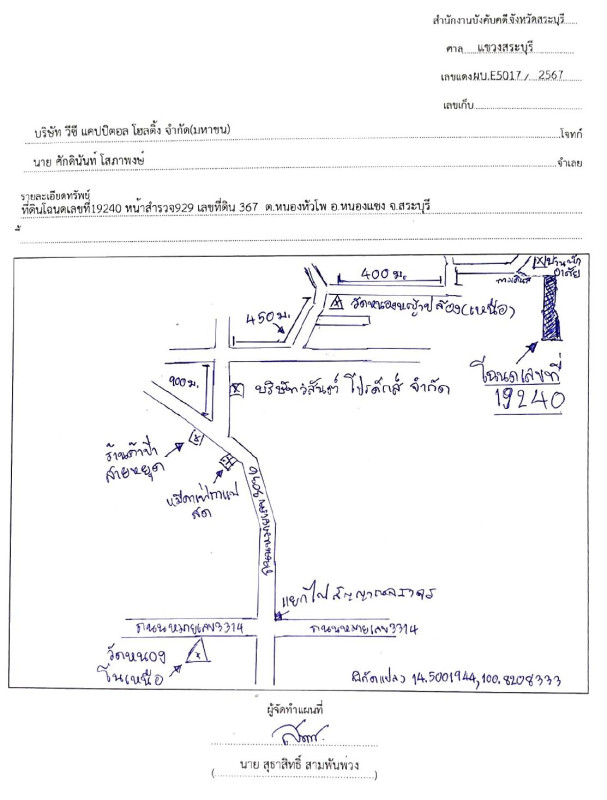 สำนักงานบังคับคดีจังหวัดสระบุรี
ศาล แขวงสระบุรี
เลขแดงผบ.E5017 / 2567
เลขเก็บ
บริษัท วีซี แคปปิตอล โฮลดิ้ง จำกัด(มหาชน) โจทก์
นาย ศักดินันท์ โสภาพงษ์ จำเลย
รายละเอียดทรัพย์
ที่ดินโฉนดเลขที่19240 หน้าสำรวจ929 เลขที่ดิน 367 ต.หนองหัวโพ อ.หนองแซง จ.สระบุรี
400 ม.
บ้านพักอาศัย
ทางเดินรถ
วัดหนองหญ้าปล้อง(เหนือ)
450 ม.
โฉนดเลขที่
19240
900 ม.
บริษัทวสันต์ โปรดักส์ จำกัด
ร้านค้าป้า
สายหยุด
สด
ถนนหมายเลข 3046
แยกไฟสัญญาณจราจร
ถนนหมายเลข3314
ถนนหมายเลข3314
วัดหนอง
โนเหนือ
พิกัดแปลง 14.5001944,100.8208333
ผู้จัดทำแผนที่
นาย สุธาสิทธิ์ สามพันพ่วง